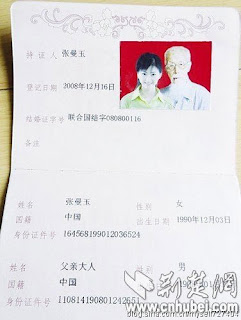 持 证 人 张曼玉
登记日期 2008年12月16日
结婚证字号 联合国结字080800116
备注
姓名 张曼玉 性别 女
国籍 中国 出生日期 1990年12月03日
身份证件号 164568199012036524
姓名 父亲大人 性别 男
国籍 中国
身份证件号 110814190801242651
荆楚网
www.cnhubei.com